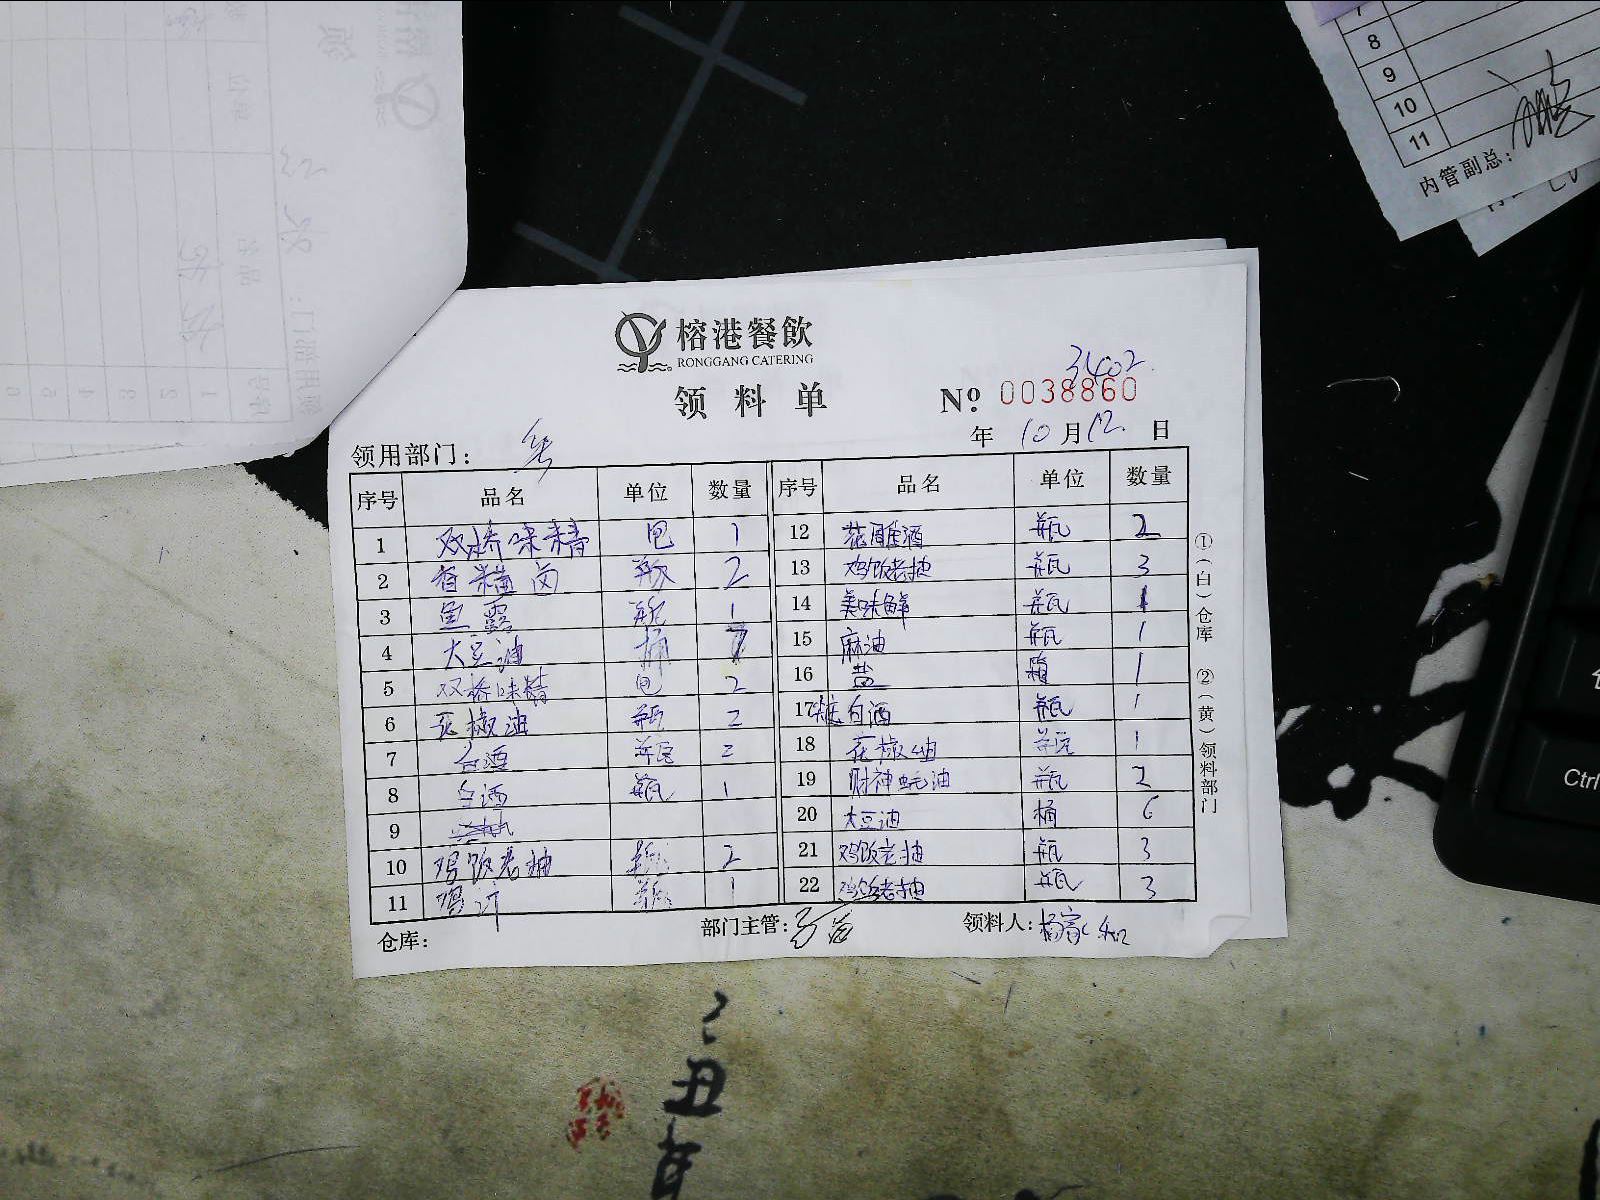 8
9
10
11
内管副总：
榕港餐飲
RONGGANG CATERING
领料单
3402
Nº 0038860
年 10月12日
领用部门：
序号 品名 单位 数量 序号 品名 单位 数量
1 双桥味精 包 1 12 花雕酒 瓶 2
2 香糟卤 瓶 2 13 鸡饭老抽 瓶 3
3 鱼露 瓶 1 14 美味鲜 瓶 1
4 大豆油 桶 15 麻油 瓶 1
5 双桥味精 包 2 16 盐 箱 1
6 花椒油 瓶 2 17 白酒 瓶 1
7 白酒 瓶 2 18 花椒油 瓶 1
8 白酒 瓶 1 19 财神蚝油 瓶 2
9 20 大豆油 桶 6
10 鸡饭老抽 瓶 2 21 鸡饭老抽 瓶 3
11 鸡汁 瓶 1 22 鸡饭老抽 瓶 3
①(白)仓库 ②(黄)领料部门
仓库： 部门主管： 领料人：
Ctrl
丑